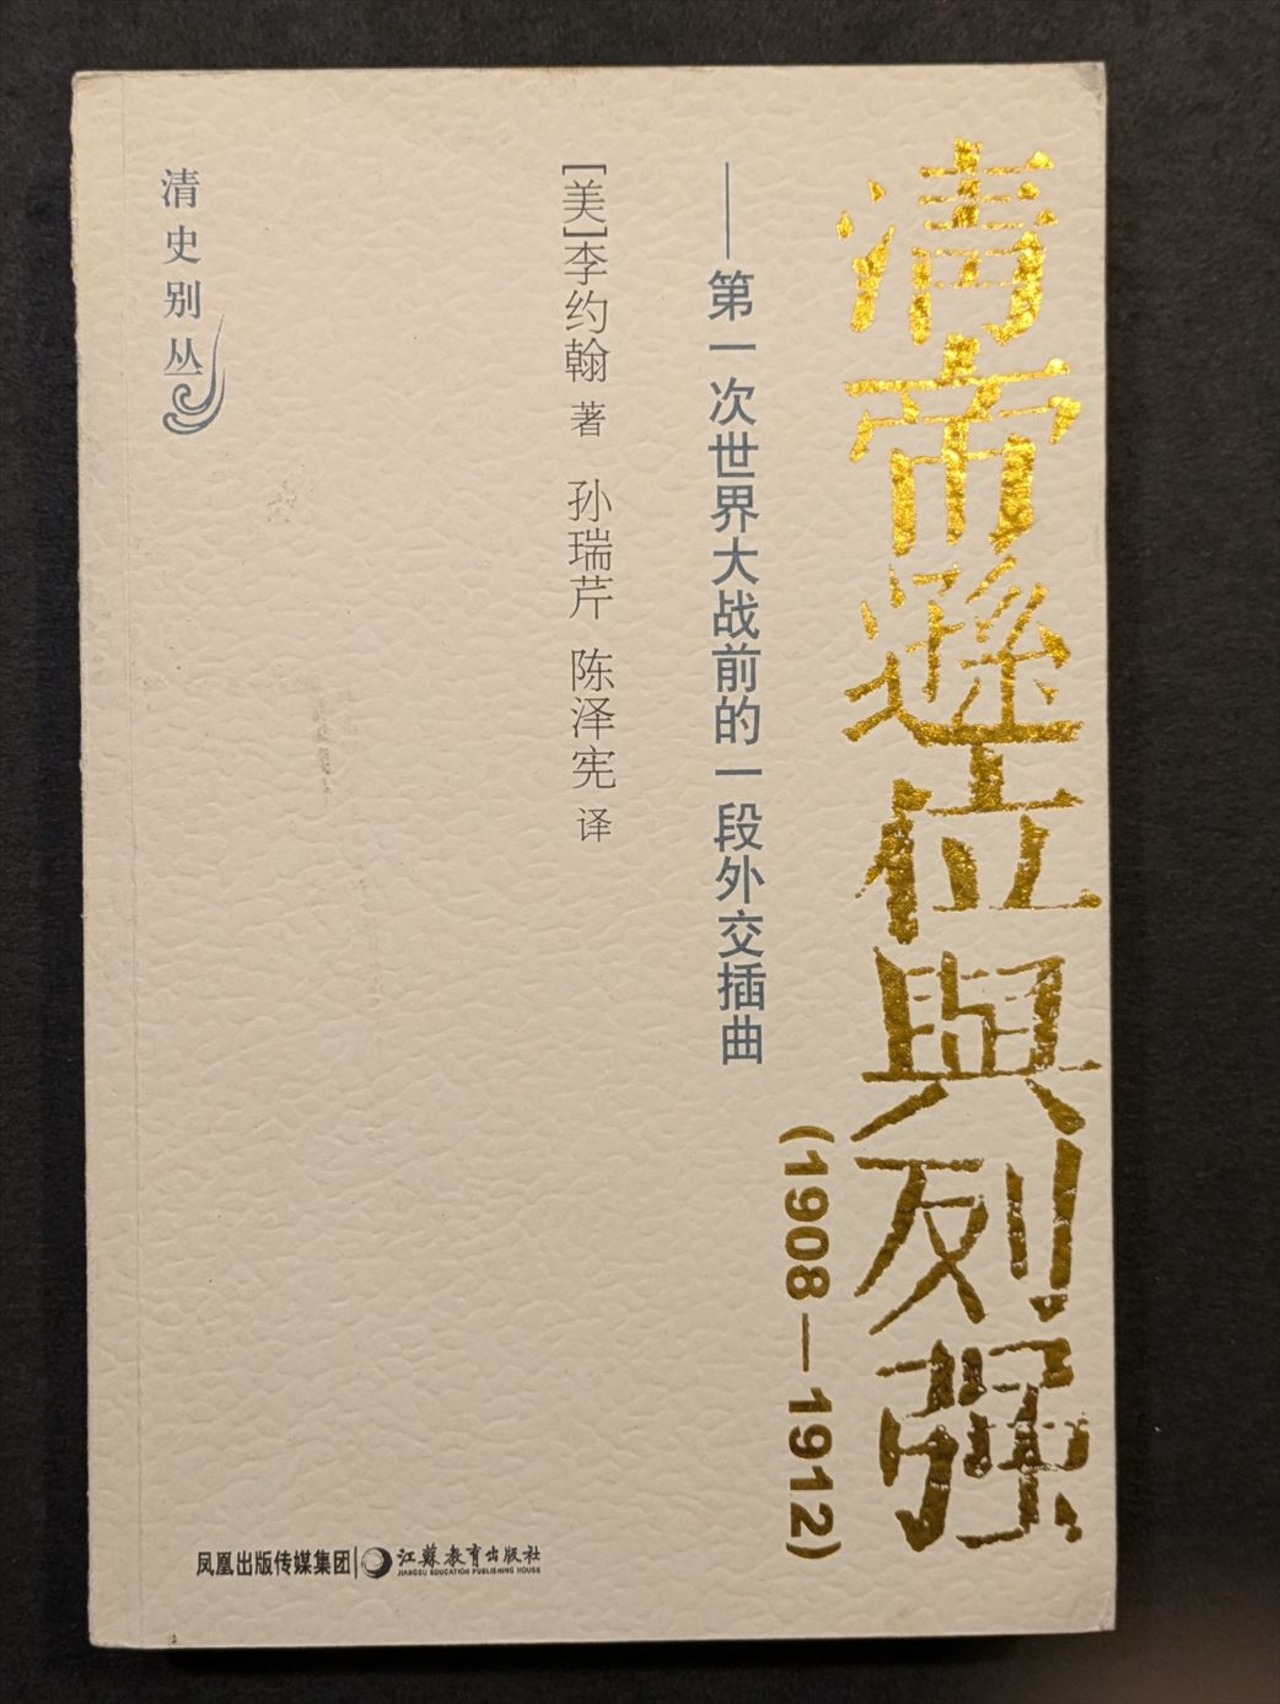 清帝遜位與列强
(1908—1912)
——第一次世界大战前的一段外交插曲
[美]李约翰 著 孙瑞芹 陈泽宪 译
清史别丛
凤凰出版传媒集团 江苏教育出版社
JIANGSU EDUCATION PUBLISHING HOUSE